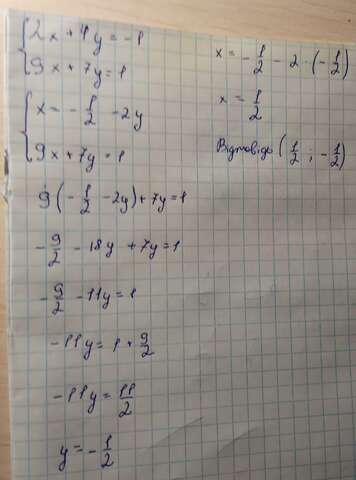 2x + 4y = -1
9x + 7y = 1
x = -1/2 - 2y
9x + 7y = 1
9(-1/2 - 2y) + 7y = 1
-9/2 - 18y + 7y = 1
-9/2 - 11y = 1
-11y = 1 + 9/2
-11y = 11/2
y = -1/2
x = -1/2 - 2 · (-1/2)
x = 1/2
Відповідь (1/2 ; -1/2)